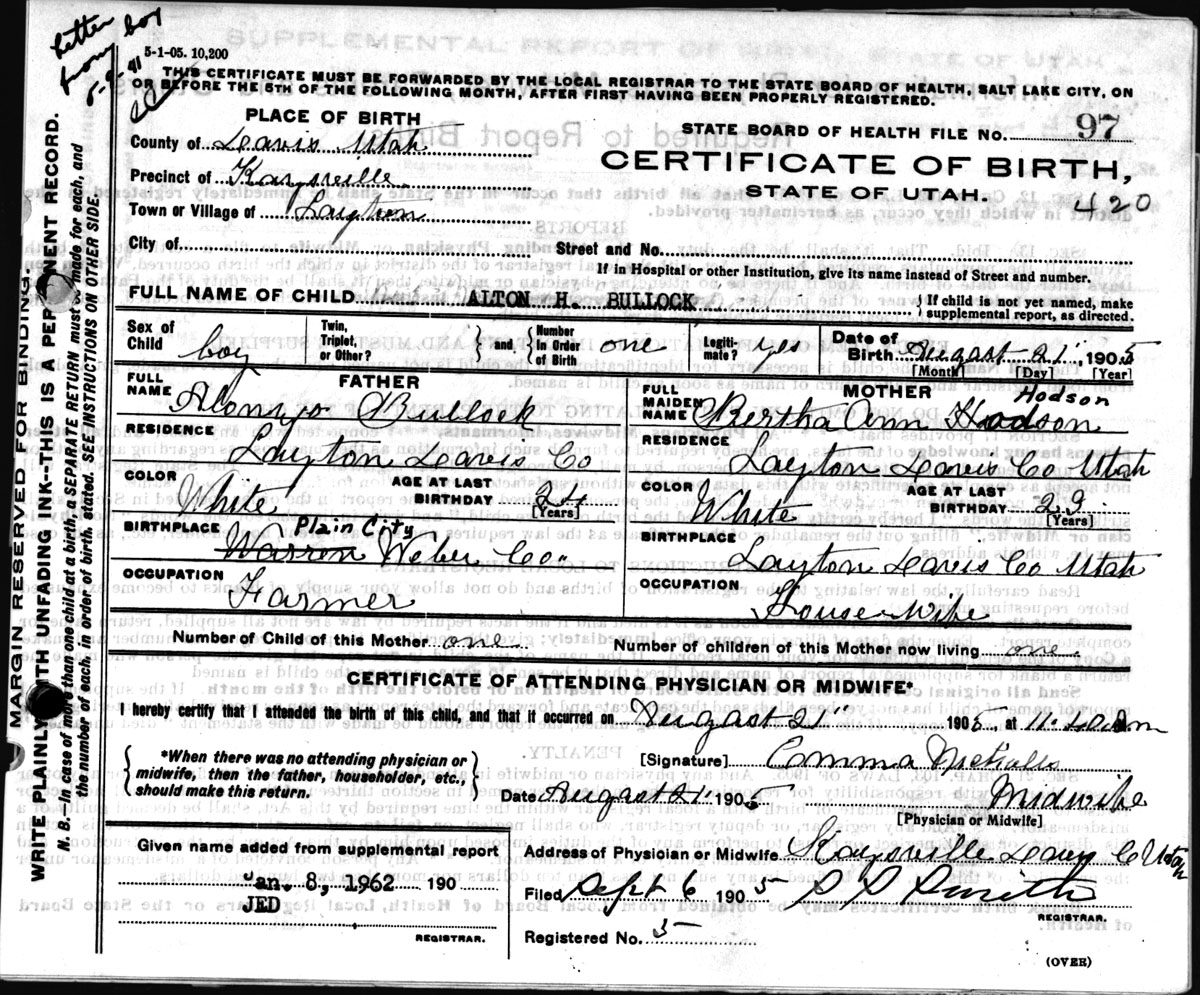 Letter
from boy
5-8-41
5-1-05. 10,200
THIS CERTIFICATE MUST BE FORWARDED BY THE LOCAL REGISTRAR TO THE STATE BOARD OF HEALTH, SALT LAKE CITY, ON
OR BEFORE THE 5TH OF THE FOLLOWING MONTH, AFTER FIRST HAVING BEEN PROPERLY REGISTERED.
MARGIN RESERVED FOR BINDING.
WRITE PLAINLY WITH UNFADING INK--THIS IS A PERMANENT RECORD.
N. B.—In case of more than one child at a birth, a SEPARATE RETURN must be made for each, and
the number of each, in order of birth stated. SEE INSTRUCTIONS ON OTHER SIDE.
PLACE OF BIRTH
County of Davis Utah
Precinct of Kaysville
Town or Village of Layton
City of
STATE BOARD OF HEALTH FILE NO. 97
CERTIFICATE OF BIRTH,
STATE OF UTAH.
420
Street and No.
If in Hospital or other Institution, give its name instead of Street and number.
FULL NAME OF CHILD ALTON H. BULLOCK } If child is not yet named, make
supplemental report, as directed.
Sex of Child boy Twin, Triplet, or Other? } and { Number in Order of Birth one Legiti- mate? yes Date of Birth August 21 1905
[Month] [Day] [Year]
FATHER
FULL NAME Alonzo Bullock
RESIDENCE
Layton Davis Co
COLOR White AGE AT LAST BIRTHDAY 24
[Years]
BIRTHPLACE Plain City
Warron Weber Co
OCCUPATION
Farmer
MOTHER
Hodson
FULL MAIDEN NAME Bertha Ann Hodson
RESIDENCE
Layton Davis Co Utah
COLOR White AGE AT LAST BIRTHDAY 29
[Years]
BIRTHPLACE
Layton Davis Co Utah
OCCUPATION
House Wife
Number of Child of this Mother one Number of children of this Mother now living one
CERTIFICATE OF ATTENDING PHYSICIAN OR MIDWIFE*
I hereby certify that I attended the birth of this child, and that it occurred on August 21 1905 at 11.40 am
{ *When there was no attending physician or
midwife, then the father, householder, etc.,
should make this return. }
[Signature] Emma Nicholls
Date August 21 1905 Midwife
[Physician or Midwife]
Given name added from supplemental report
Jan. 8, 1962 190
JED
REGISTRAR.
Address of Physician or Midwife Kaysville Davis C Utah
Filed Sept 6 1905 Smith
REGISTRAR.
Registered No. 5
(OVER)